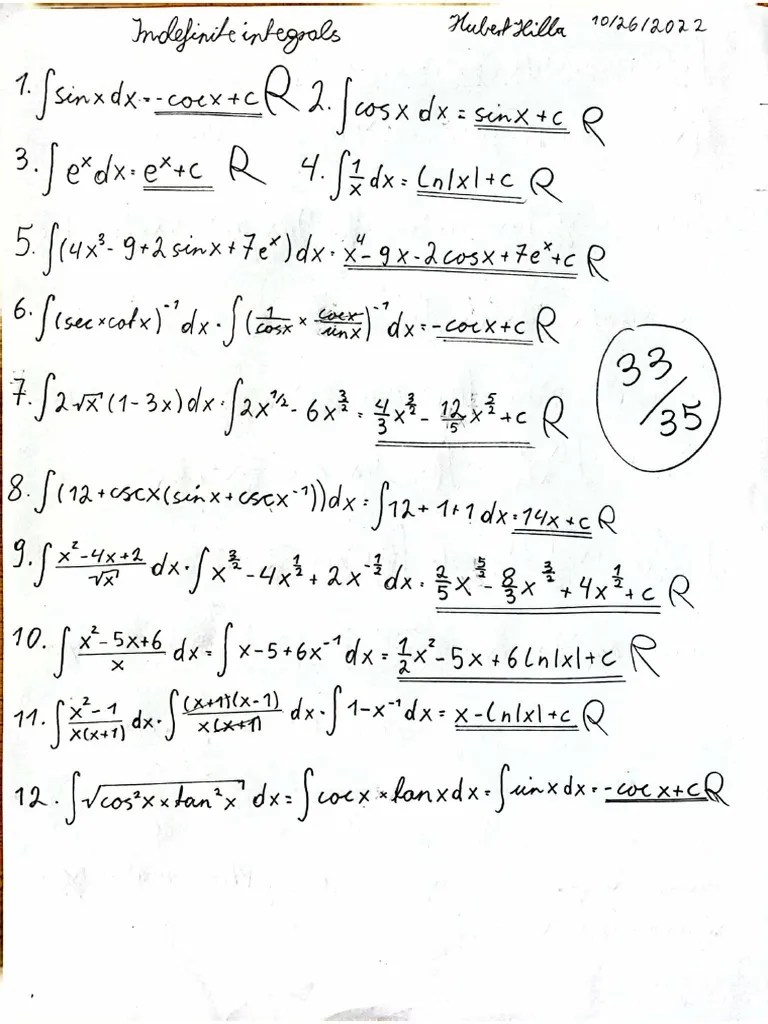 Indefinite integrals Hubert Hilla 10/26/2022
1. ∫sinx dx = -cosx+c R 2. ∫cosx dx = sinx+c R
3. ∫e^x dx = e^x+c R 4. ∫1/x dx = ln|x|+c R
5. ∫(4x³-9+2sinx+7e^x)dx = x⁴-9x-2cosx+7e^x+c R
6. ∫(secxcotx)^-1 dx = ∫(1/cosx × cosx/sinx)^-1 dx = -cosx+c R
33/35
7. ∫2√x(1-3x)dx = ∫2x^1/2 - 6x^3/2 = 4/3x^3/2 - 12/5x^5/2+c R
8. ∫(12+cscx(sinx+cscx^-1))dx = ∫12+1+1dx = 14x+c R
9. ∫(x²-4x+2)/√x dx = ∫x^3/2-4x^1/2+2x^-1/2 dx = 2/5x^5/2 - 8/3x^3/2+4x^1/2+c R
10. ∫(x²-5x+6)/x dx = ∫x-5+6x^-1 dx = 1/2x²-5x+6ln|x|+c R
11. ∫(x²-1)/(x(x+1)) dx = ∫((x+1)(x-1))/(x(x+1)) dx = ∫1-x^-1 dx = x-ln|x|+c R
12. ∫√(cos²x×tan²x) dx = ∫cosx×tanx dx = ∫sinx dx = -cosx+c R